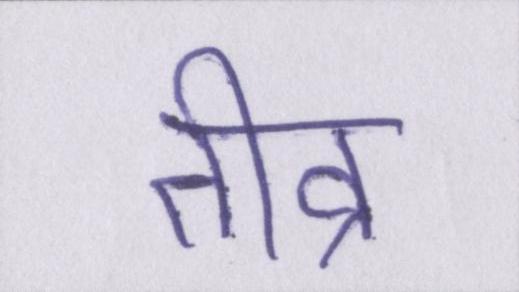 तीव्र